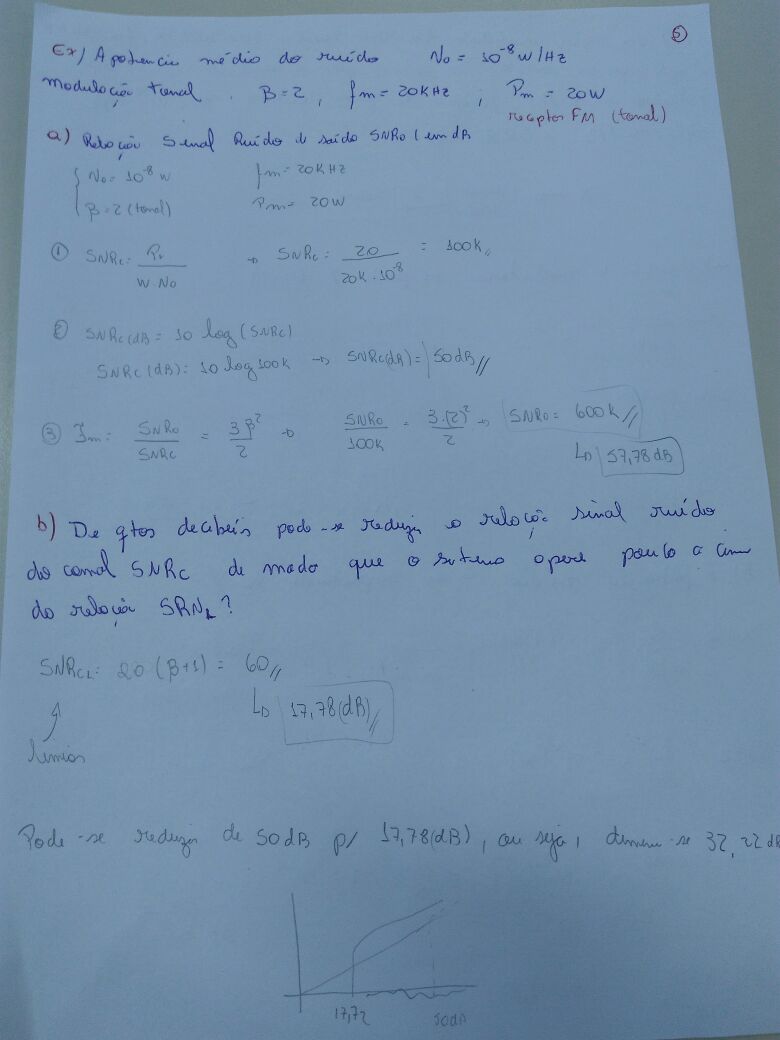 5
Ex) A potencia média do ruído No = 10^-8 W/Hz
Modulação tonal. β=2, fm = 20KHz; Pm = 20W
receptor FM (tonal)
a) Relação Sinal Ruído de saída SNRo (em dB
No = 10^-8 W fm = 20KHz
β=2 (tonal) Pm = 20W
① SNRc = Pr / W No → SNRc = 20 / 20K.10^-8 = 100K //
② SNRc(dB = 10 log (SNRc)
SNRc (dB) = 10 log 100K → SNRc(dB) = 50dB //
③ Fm: SNRo / SNRc = 3β² / 2 → SNRo / 100K = 3.(2)² / 2 → SNRo = 600K //
↳ 57,78 dB
b) De qtos decibeis pode-se reduzir a relação sinal ruído
do canal SNRc de modo que o sistema opere pouco a cima
da relação SRN_L?
SNRcL: 20 (β+1) = 60 //
↳ 17,78 (dB) //
limiar
Pode-se reduzir de 50dB p/ 17,78(dB), ou seja, diminui-se 32,22 dB
17,72 50dB